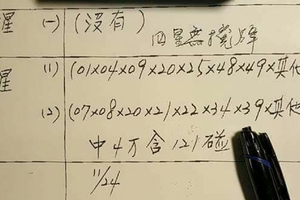 星 (一) (沒有) 四星無擋牌
星 (1) (01×04×09×20×25×48×49×其他
(2) (07×08×20×21×22×34×39×其他
中4万含121碰
11/24